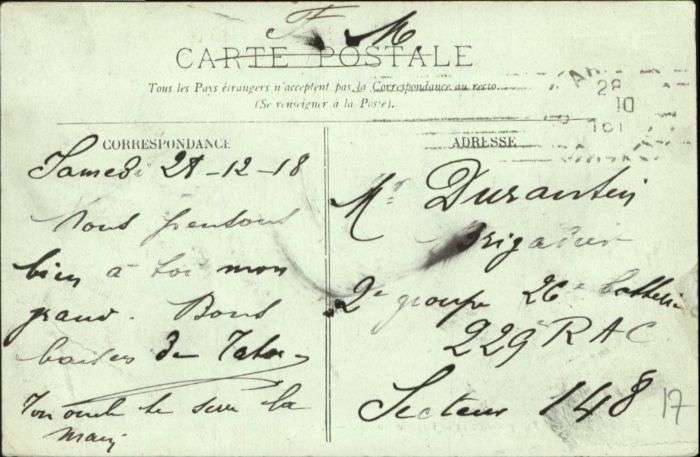 F. M.
CARTE POSTALE
Tous les Pays étrangers n'acceptent pas la Correspondance au recto
(Se renseigner à la Poste).
28
10
CORRESPONDANCE
Samedi 28-12-18
Nous pensons
bien à toi mon
grand. Bons
baisers de
Ton oncle te serre la
main
ADRESSE
Mr Durantin
Brigadier
2e groupe 26e batterie
229e RAC
Secteur 148
17